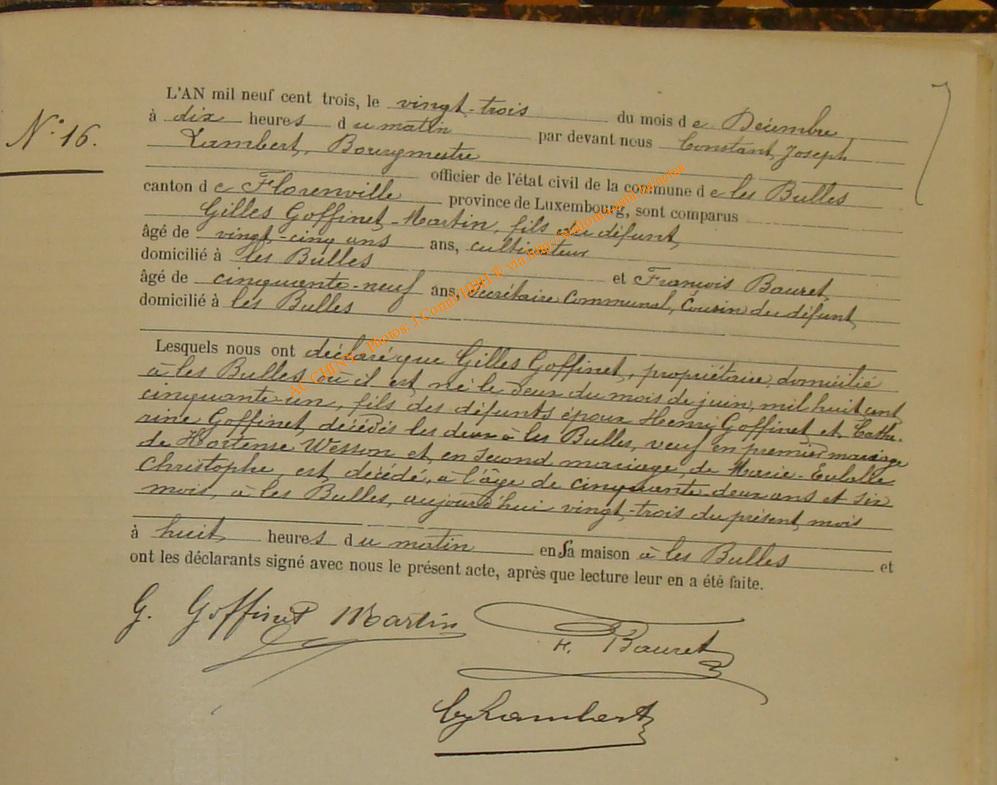 N° 16.
L'AN mil neuf cent trois, le vingt-trois du mois de Décembre
à dix heures du matin par devant nous Constant Joseph
Lambert, Bourgmestre officier de l'état civil de la commune de les Bulles
canton de Florenville, province de Luxembourg, sont comparus
Gilles Goffinet-Martin, fils du défunt,
âgé de vingt-cinq ans ans, cultivateur
domicilié à les Bulles et François Bauret,
âgé de cinquante-neuf ans, Secrétaire Communal, Cousin du défunt,
domicilié à les Bulles
Lesquels nous ont déclaré que Gilles Goffinet, propriétaire, domicilié
à les Bulles où il est né le deux du mois de juin, mil huit cent
cinquante-un, fils des défunts époux Henri Goffinet, et Cathe-
rine Goffinet, décédés les deux à les Bulles, veuf en premier mariage
de Hortense Wesson et en second mariage, de Marie-Eulalie
Christophe, est décédé, à l'âge de cinquante-deux ans et six
mois, à les Bulles, aujourd'hui vingt-trois du présent mois
à huit heures du matin en sa maison à les Bulles et
ont les déclarants signé avec nous le présent acte, après que lecture leur en a été faite.
G. Goffinet Martin
F. Bauret
CJ Lambert